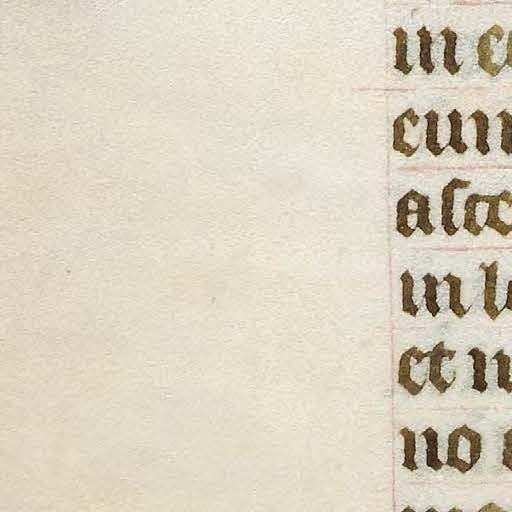 in
eum
asce
in l
et n
no